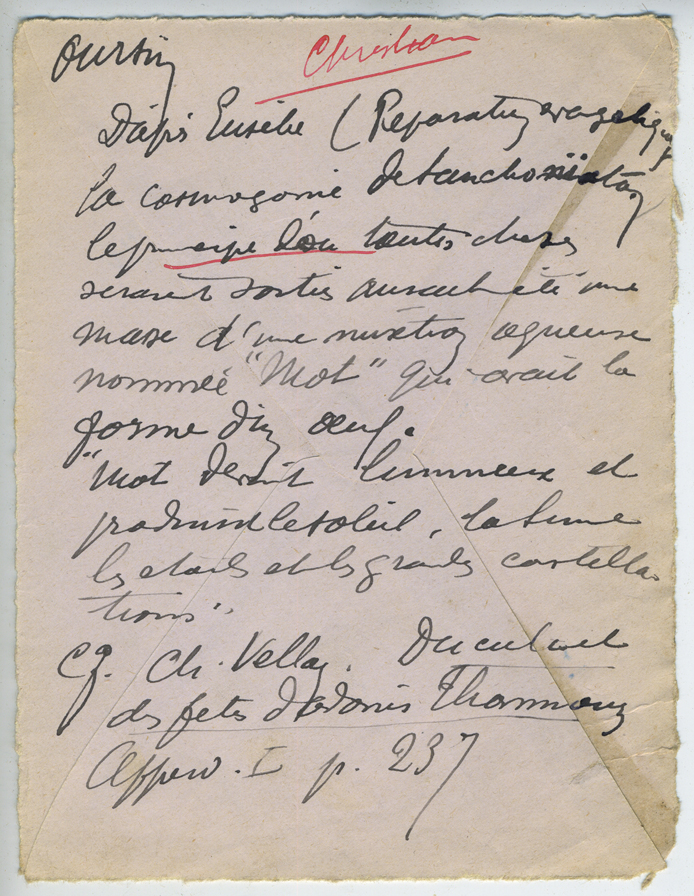 Oursin
Christian
D'après Eusèbe (Préparation évangélique
la cosmogonie de Sanchoniaton,
le principe d'où toutes choses
seraient sorties aurait été une
masse d'une mixtion aqueuse
nommée "Mot" qui avait la
forme d'un œuf.
"Mot devint lumineux et
produisit le soleil, la lune
les étoiles et les grandes constella
tions"
Cf. Ch. Vellay. Du culte et
des fêtes d'Adonis Thammouz
Append. I p. 237